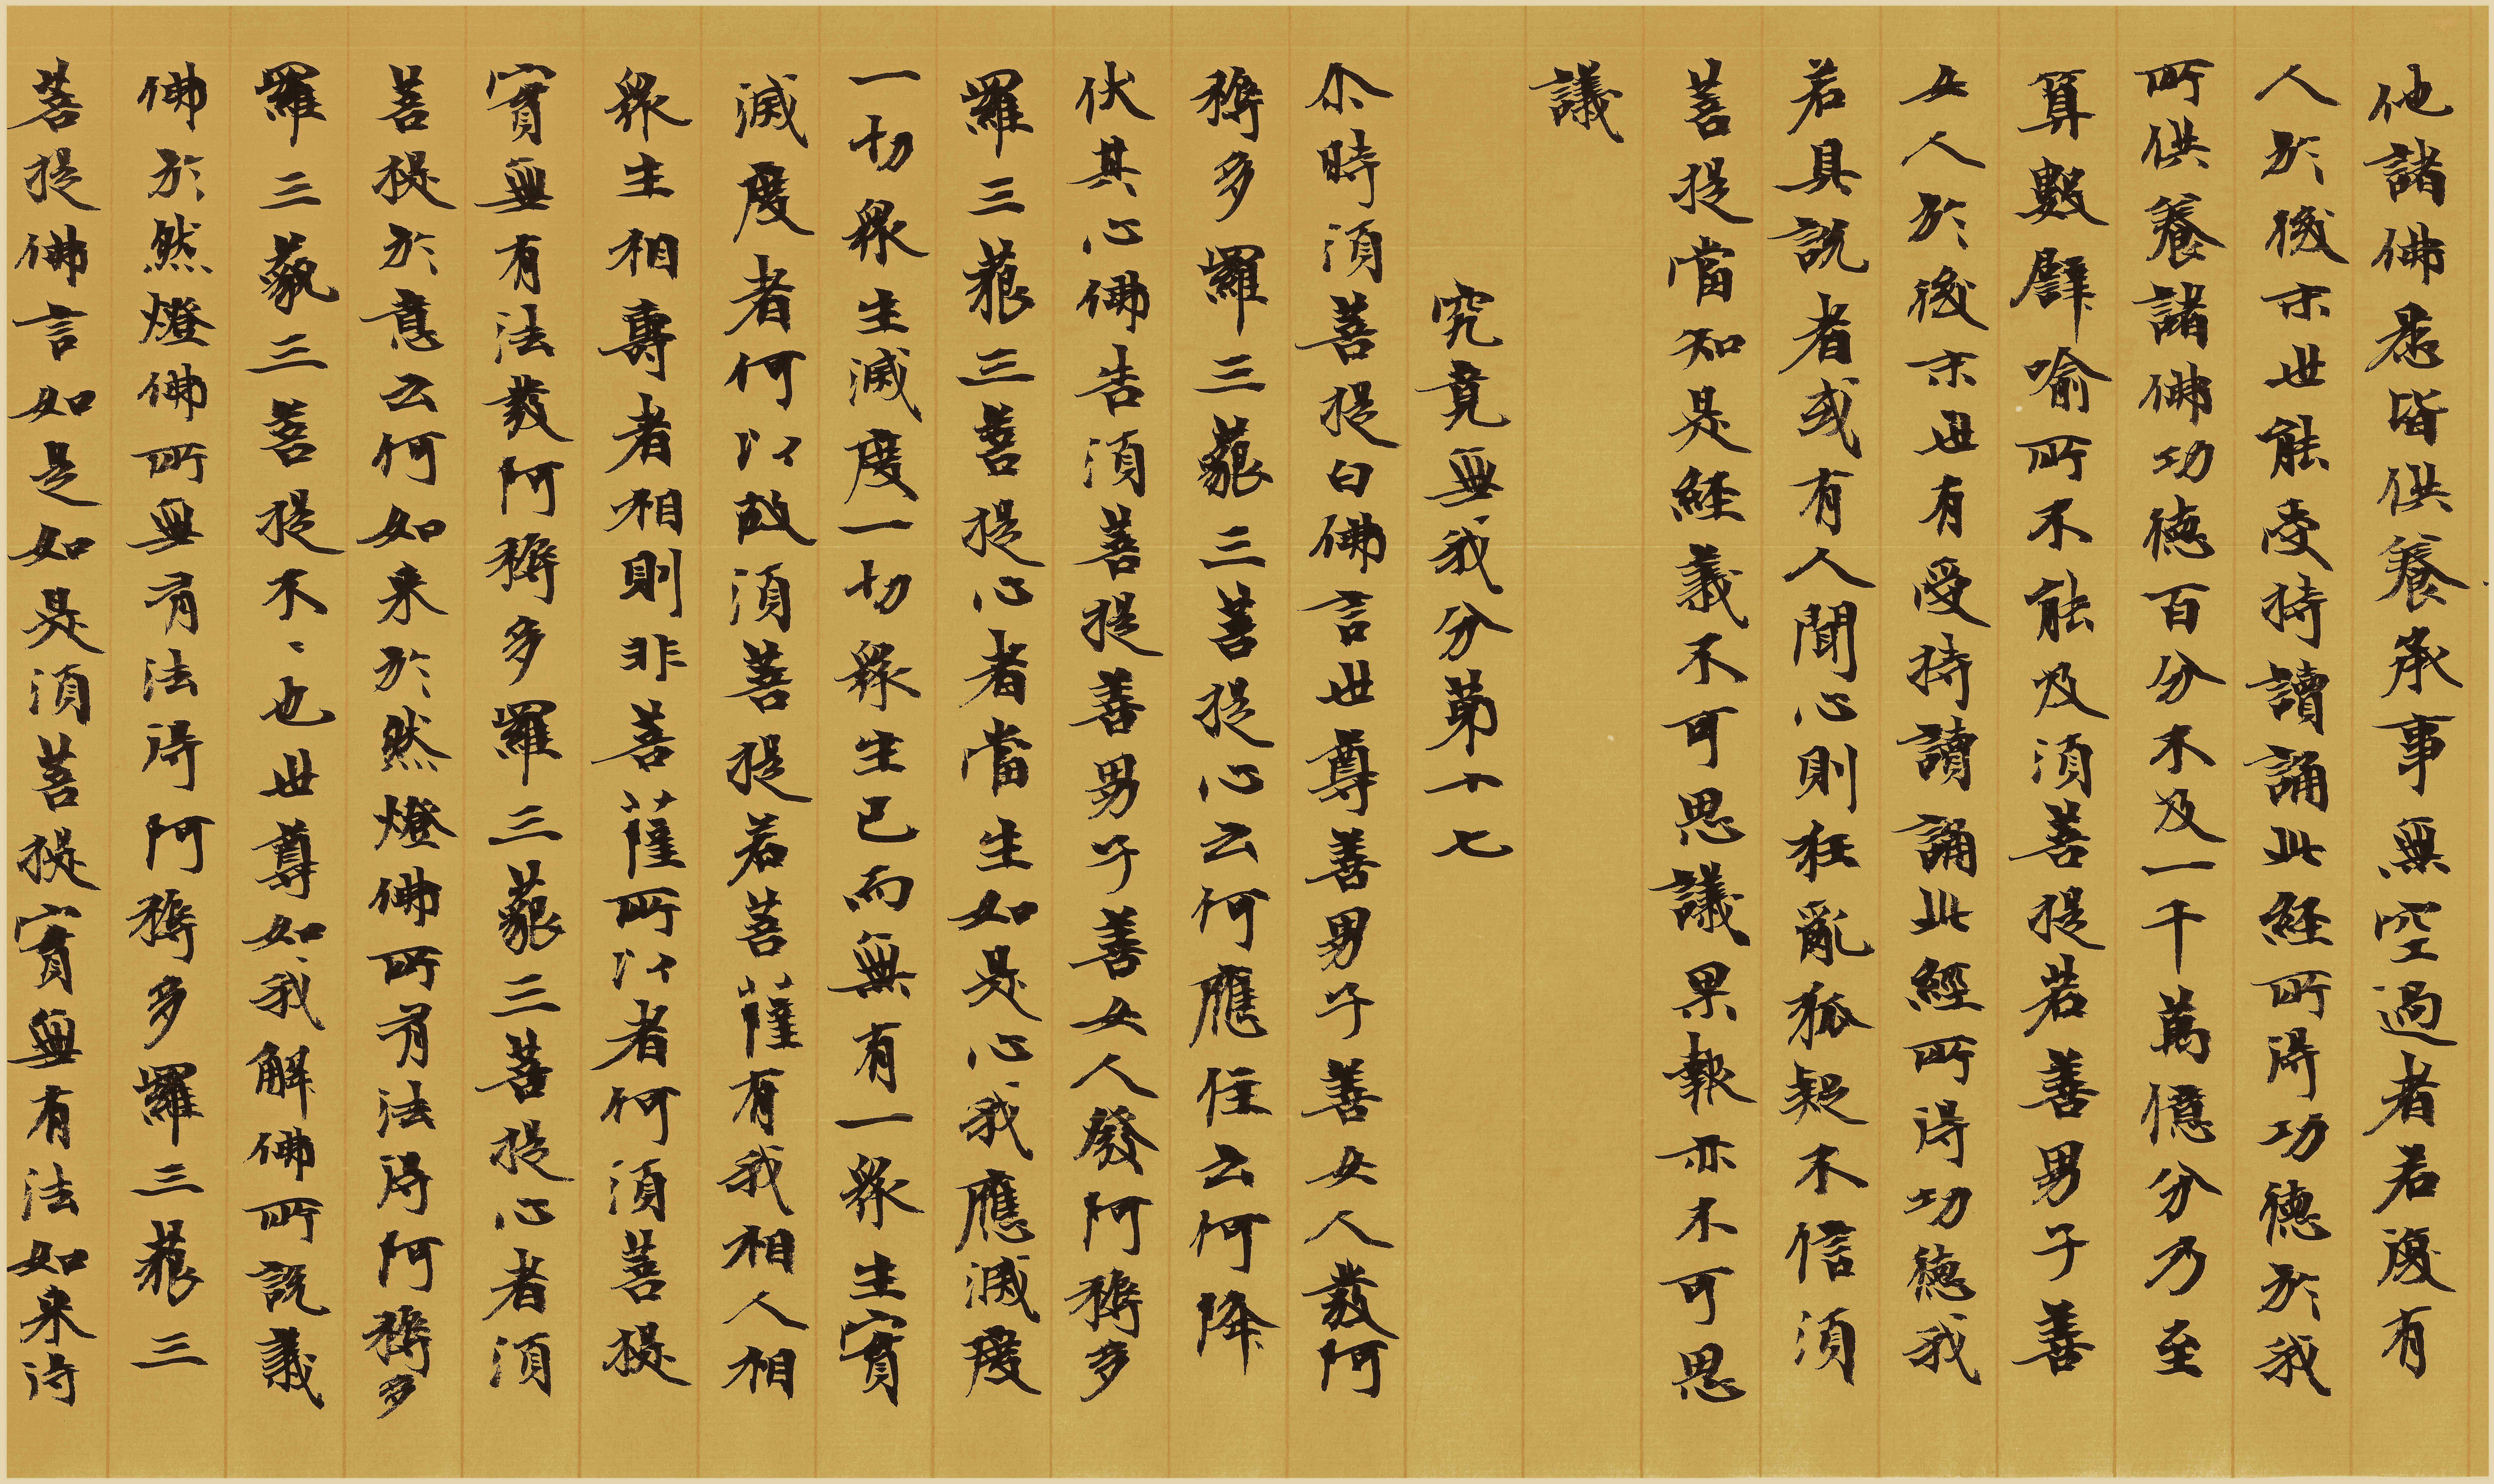 他諸佛悉皆供養承事無空過者若復有
人於後末世能受持讀誦此経所得功德於我
所供養諸佛功德百分不及一千萬億分乃至
算數譬喻所不能及須菩提若善男子善
女人於後末世有受持讀誦此經所得功德我
若具説者或有人聞心則狂亂狐疑不信須
菩提當知是經義不可思議果報亦不可思
議
究竟無我分第十七
尒時須菩提白佛言世尊善男子善女人發阿
耨多羅三藐三菩提心云何應住云何降
伏其心佛告須菩提善男子善女人發阿耨多
羅三藐三菩提心者當生如是心我應滅度
一切眾生滅度一切眾生已而無有一眾生實
滅度者何以故須菩提若菩薩有我相人相
眾生相壽者相則非菩薩所以者何須菩提
實無有法發阿耨多羅三藐三菩提心者須
菩提於意云何如来於然燈佛所有法得阿耨多
羅三藐三菩提不、也世尊如我解佛所説義
佛於然燈佛所無有法得阿耨多羅三藐三
菩提佛言如是如是須菩提實無有法如来得